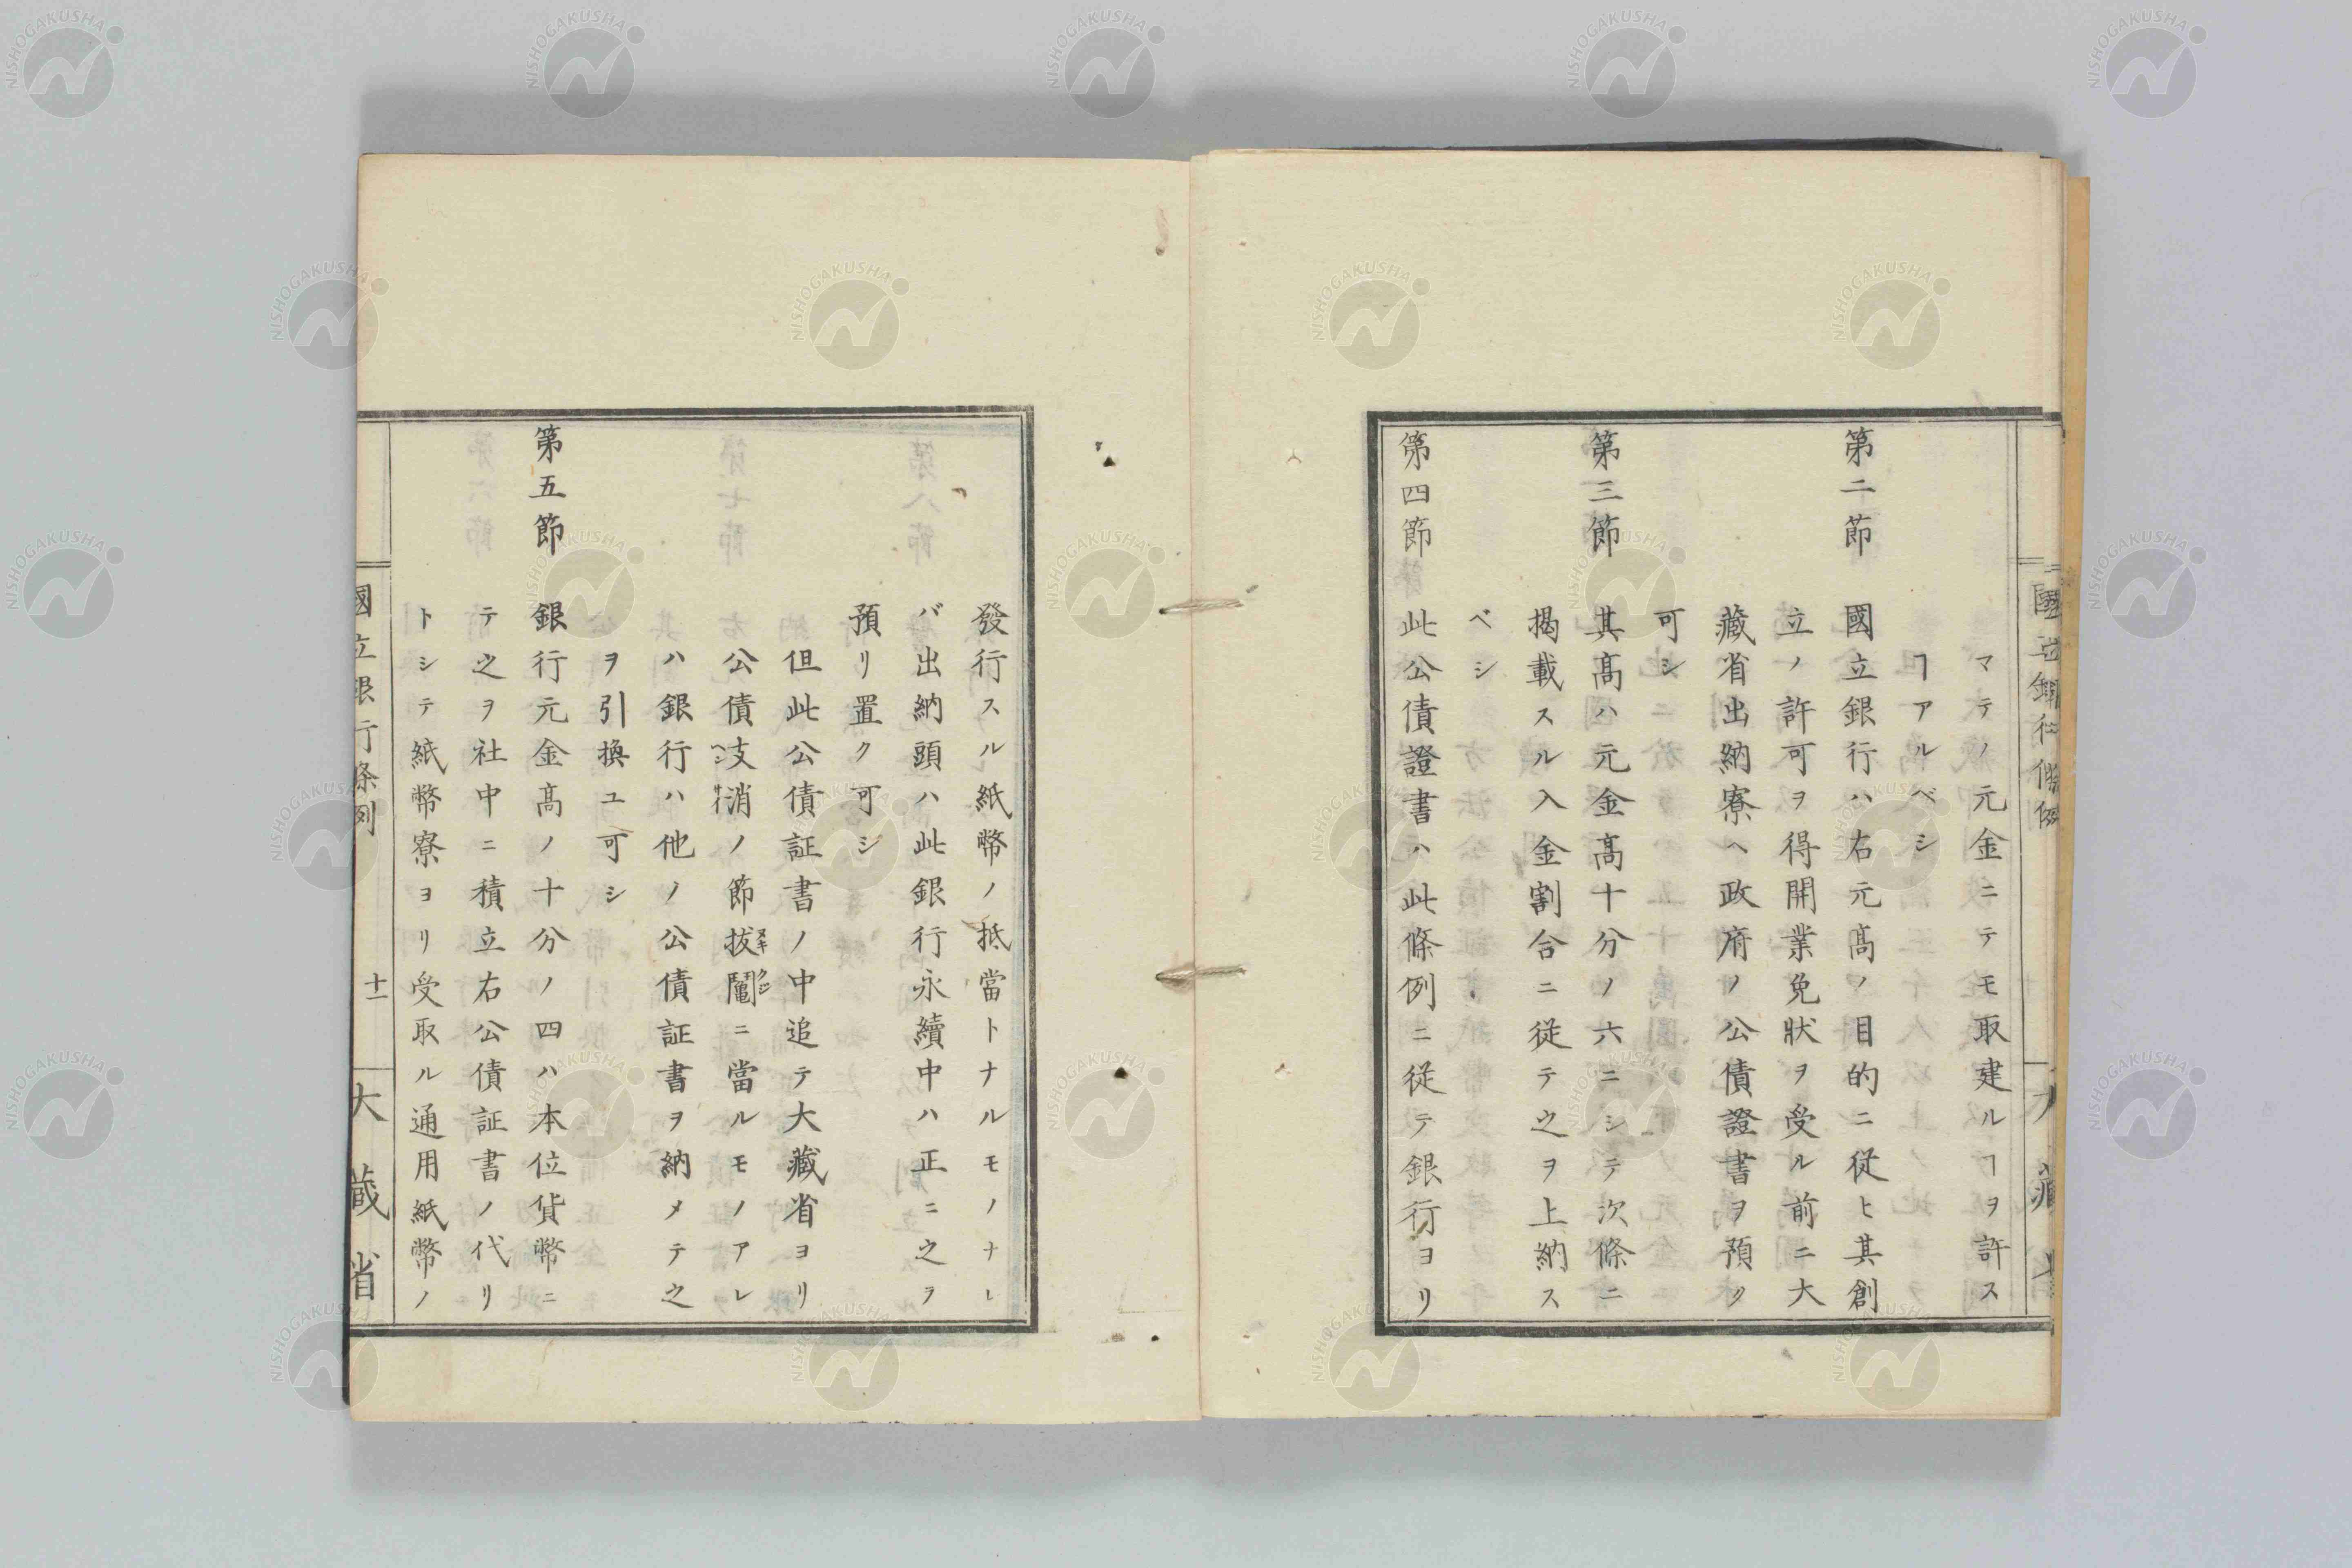 マテノ元金ニテモ取建ルヿヲ許ス
ヿアルベシ
第二節 國立銀行ハ右元高ノ目的ニ從ヒ其創
立ノ許可ヲ得開業免狀ヲ受ル前ニ大
藏省出納寮ヘ政府ノ公債證書ヲ預ク
可シ
第三節 其髙ハ元金髙十分ノ六ニシテ次條ニ
揭載スル入金割合ニ從テ之ヲ上納ス
ベシ
第四節 此公債證書ハ此條例ニ從テ銀行ヨリ
發行スル紙幣ノ抵當トナルモノナレ
バ出納頭ハ此銀行永續中ハ正ニ之ヲ
預リ置ク可シ
但此公債証書ノ中追テ大藏省ヨリ
公債支消ノ節拔鬮ニ當ルモノアレ
ヌキ クジ
ハ銀行ハ他ノ公債証書ヲ納メテ之
ヲ引換ユ可シ
第五節 銀行元金髙ノ十分ノ四ハ本位貨幣ニ
テ之ヲ社中ニ積立右公債証書ノ代リ
トシテ紙幣寮ヨリ受取ル通用紙幣ノ
國立銀行條例 十一 大藏省
NISHOGAKUSHA